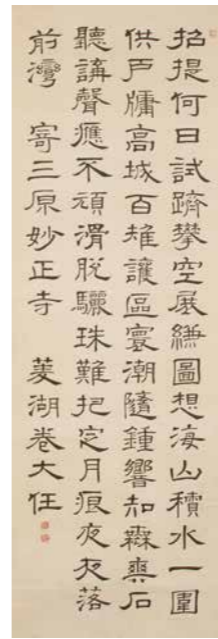 招提何日試躋攀空展縑圖想海山積水一圍
供戶牖高城百雉護區寰潮隨鍾響知無爽石
聽講聲應不頑滑脫驪珠難把定月痕夜夜落
前灣　寄三原妙正寺　菱湖卷大任